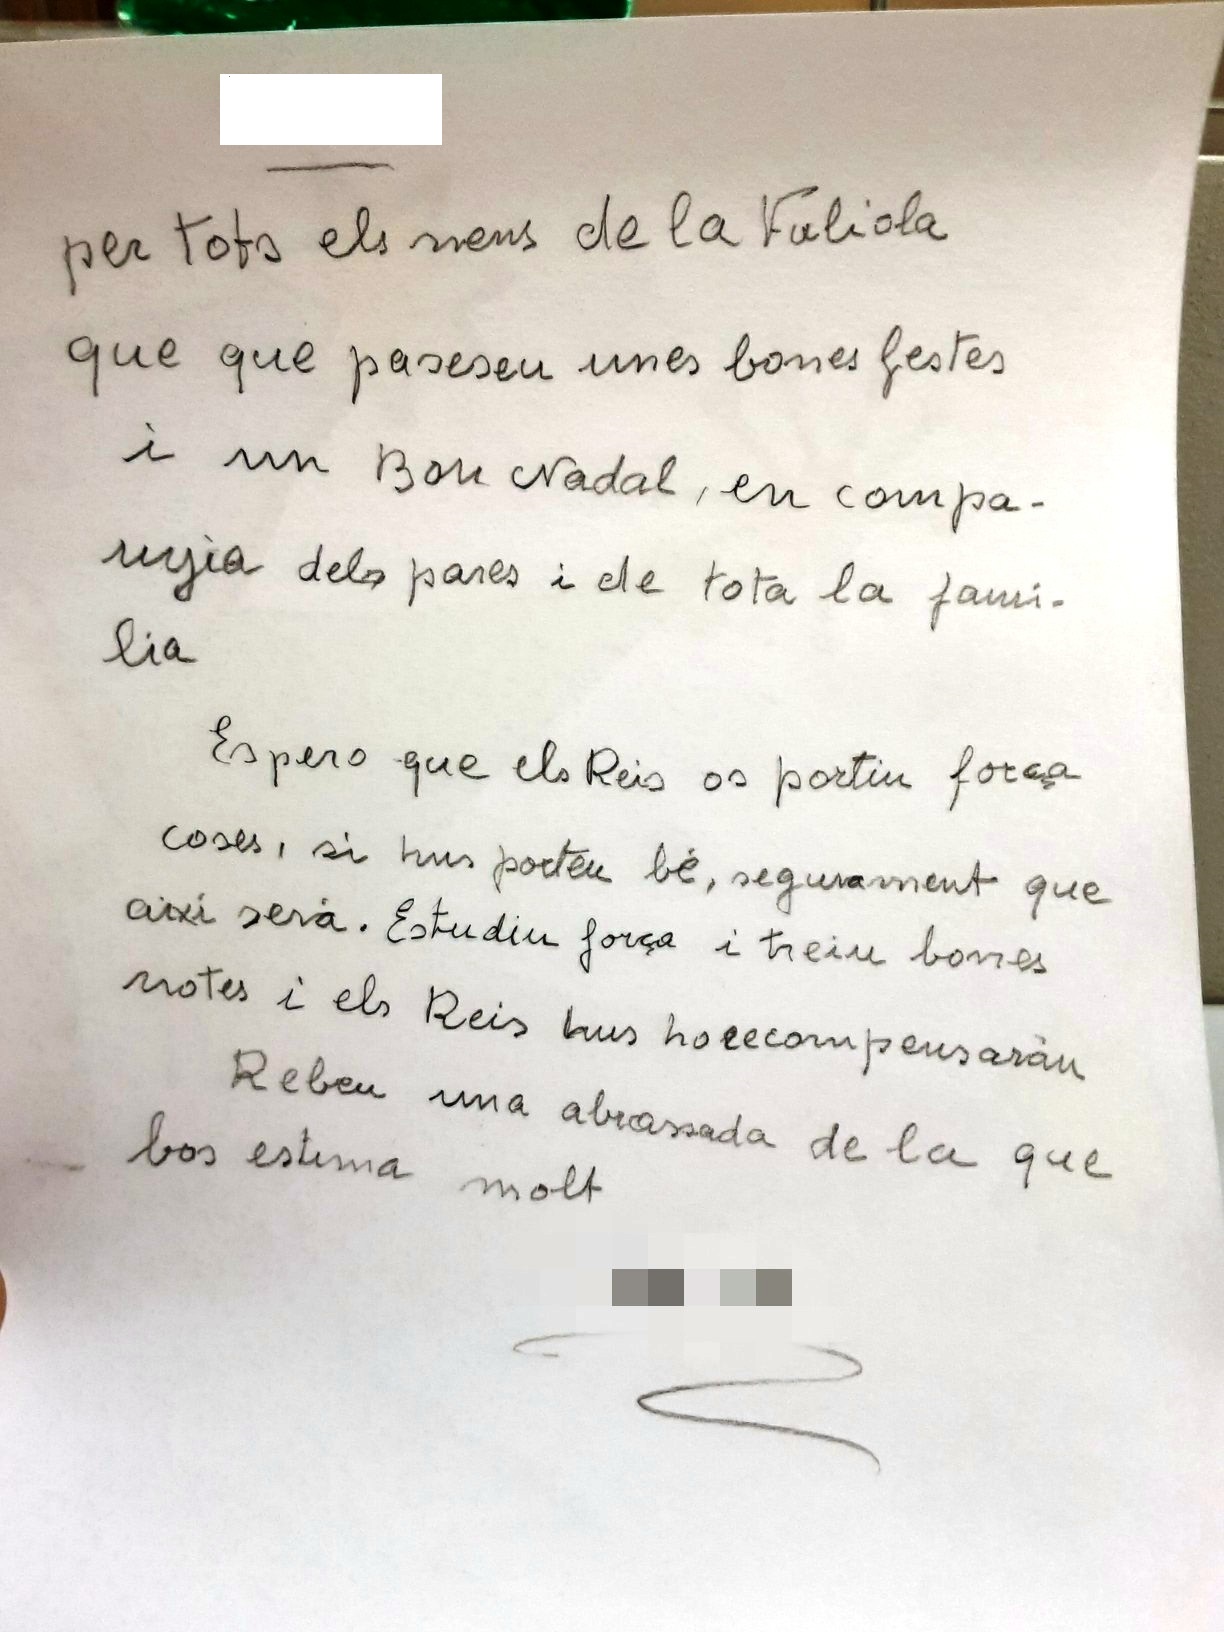 per tots els nens de la Fuliola
que que paseseu unes bones festes
i un Bon Nadal, en compa-
nyia dels pares i de tota la fami-
lia
Espero que els Reis os portin força
coses, si hus porteu bé, segurament que
aixi serà. Estudiu força i treiu bones
notes i els Reis hus horecompensaràn
Rebeu una abrassada de la que
bos estima molt